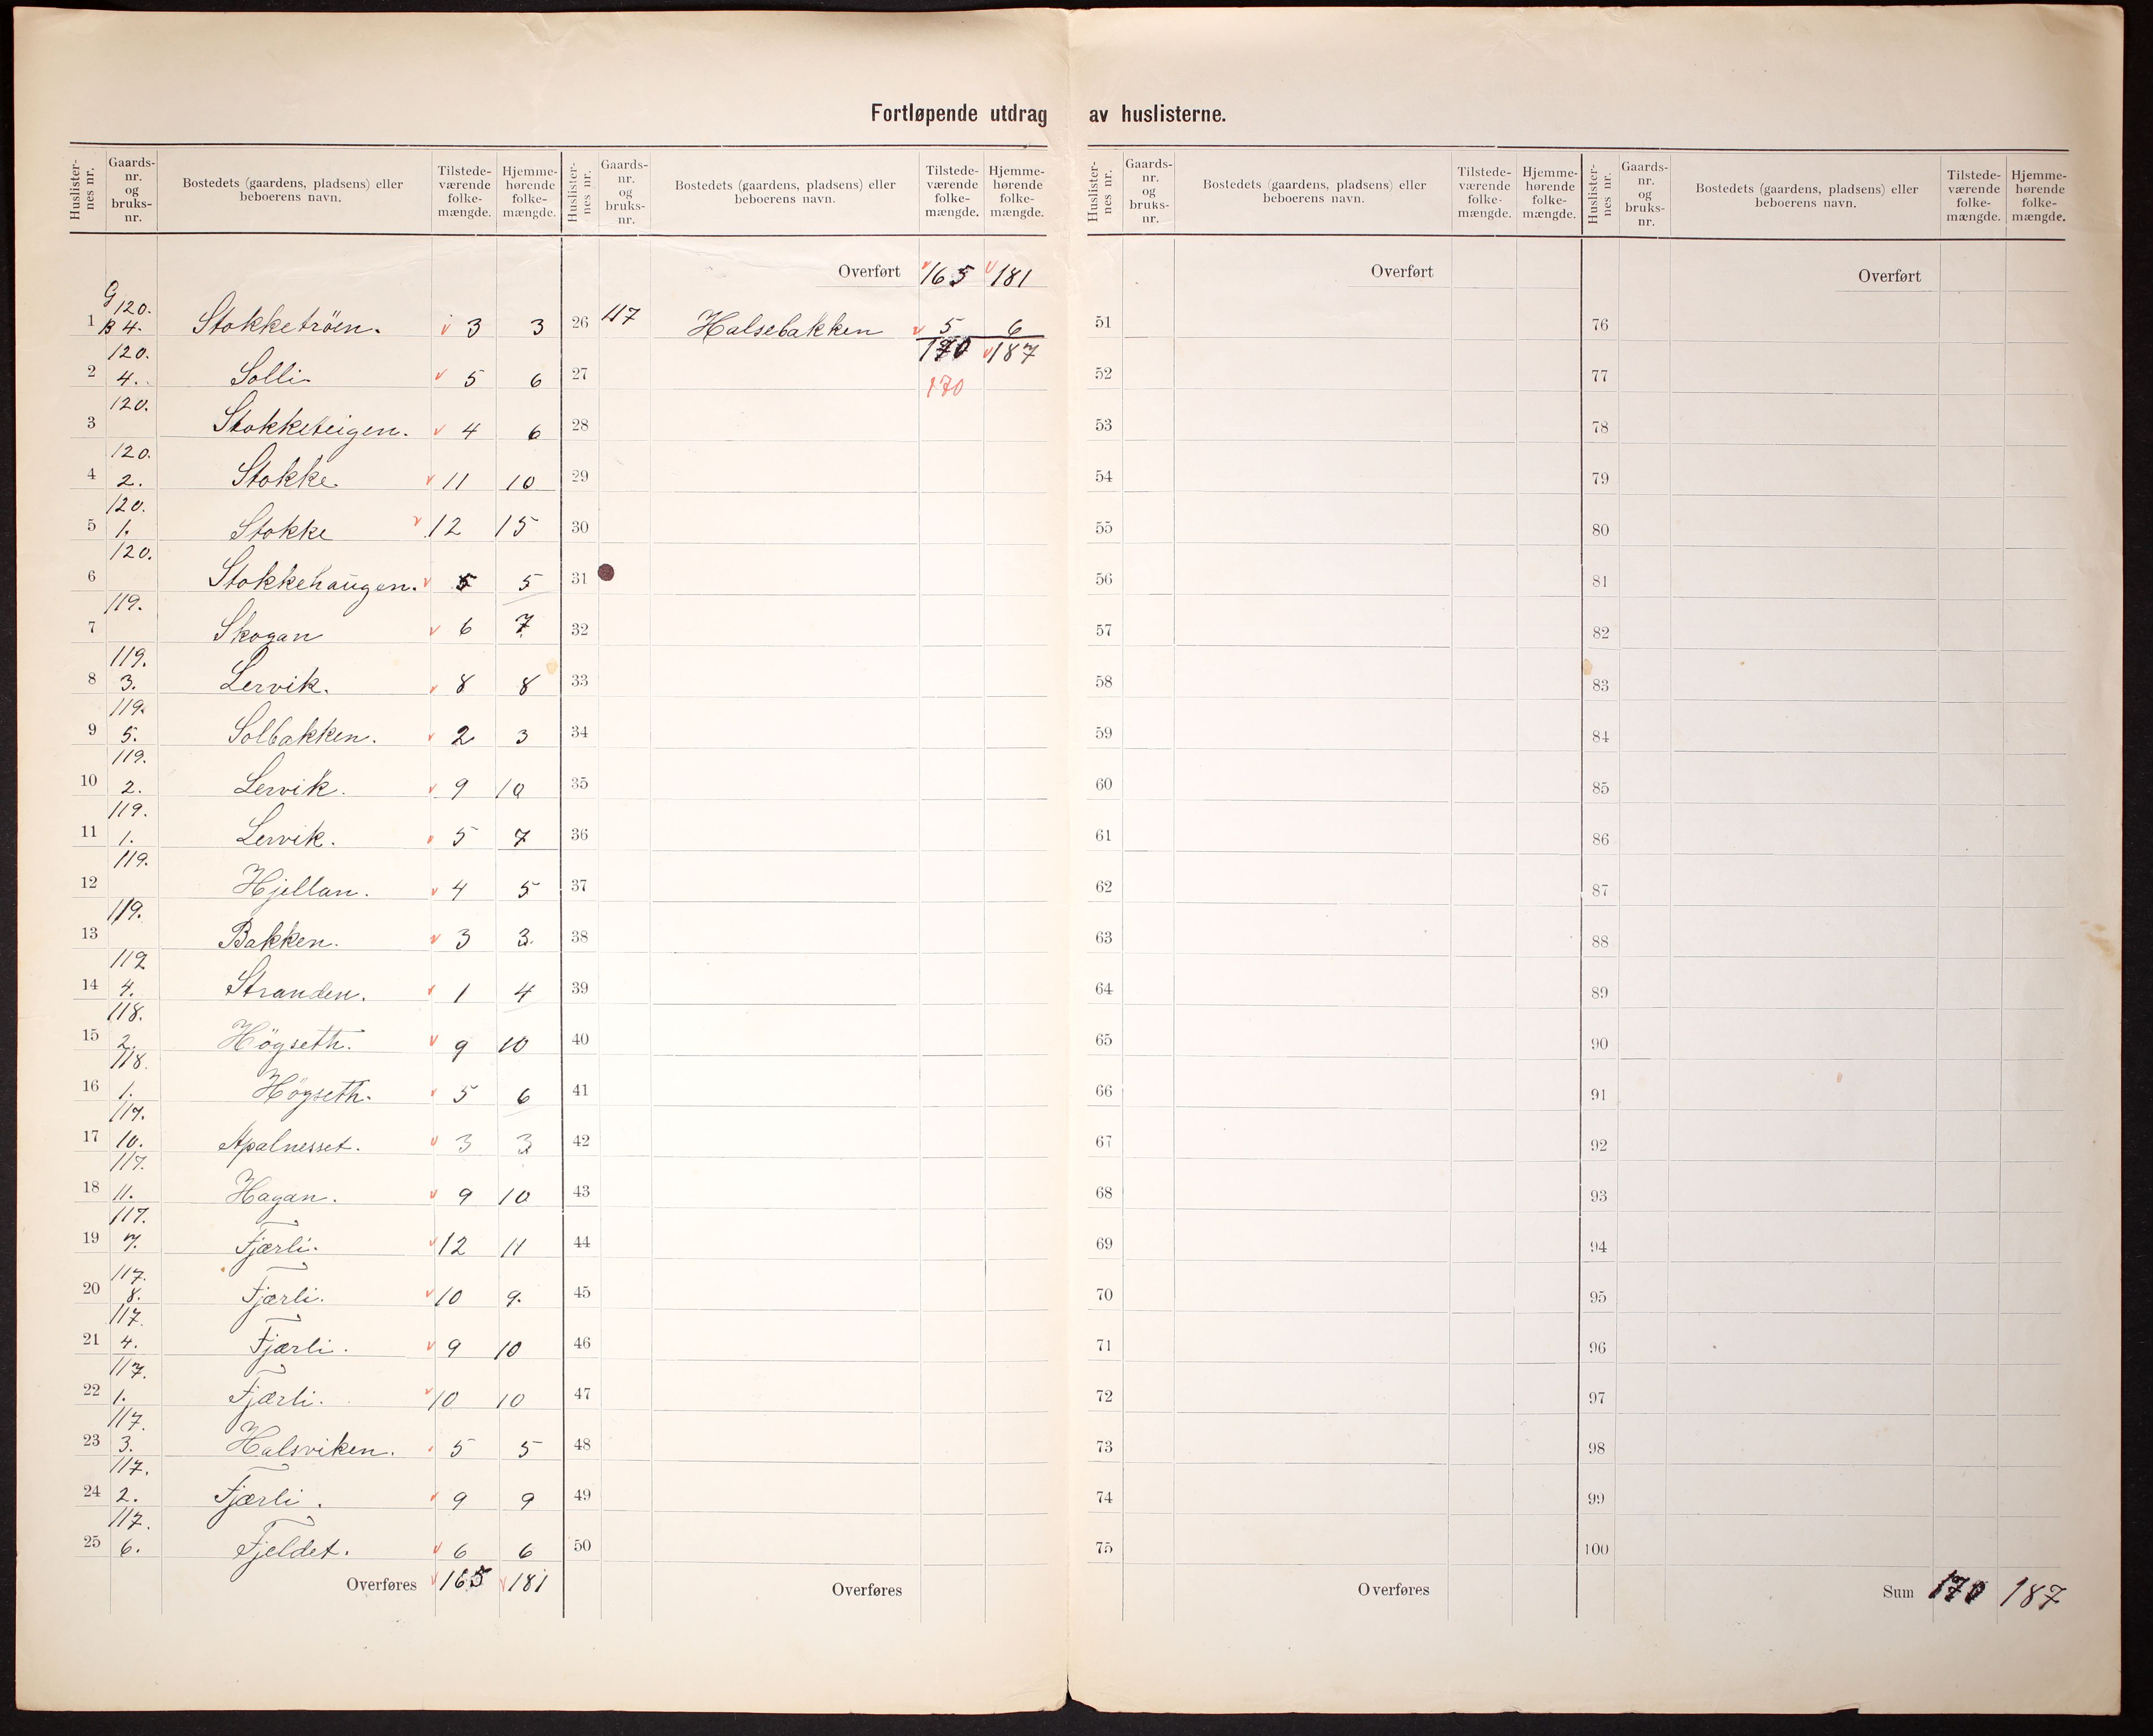 Fortløpende utdrag av huslisterne.
Huslister-nes nr. Gaards-nr. og bruks-nr. Bostedets (gaardens, pladsens) eller beboerens navn. Tilstede-værende folke-mængde. Hjemme-hørende folke-mængde.
1 G 120. B 4. Stokketröen. v 3 3
2 120. 4. Solli v 5 6
3 120. Stokketeigen. v 4 6
4 120. 2. Stokke. v 11 10
5 120. 1. Stokke v 12 15
6 120. Stokkehaugen. v 5 5
7 119. Skogan v 6 7
8 119. 3. Lervik. v 8 8
9 119. 5. Solbakken. v 2 3
10 119. 2. Lervik. v 9 10
11 119. 1. Lervik. v 5 7
12 119. Hjellan. v 4 5
13 119. Bakken. v 3 3.
14 119 4. Stranden. v 1 4
15 118. 2. Högseth. v 9 10
16 118. 1. Högseth. v 5 6
17 117. 10. Apalnesset. v 3 3
18 117. 11. Hagan. v 9 10
19 117. 7. Fjærli. v 12 11
20 117. 8. Fjærli. v 10 9.
21 117. 4. Fjærli. v 9 10
22 117. 1. Fjærli. v 10 10
23 117. 3. Halsviken. v 5 5
24 117. 2. Fjærli. v 9 9
25 117. 6. Fjeldet. v 6 6
Overføres v 165 v 181
Huslister-nes nr. Gaards-nr. og bruks-nr. Bostedets (gaardens, pladsens) eller beboerens navn. Tilstede-værende folke-mængde. Hjemme-hørende folke-mængde.
Overført v 165 v 181
26 117 Halsebakken v 5 6
170 v 187
27 170
28
29
30
31
32
33
34
35
36
37
38
39
40
41
42
43
44
45
46
47
48
49
50
Overføres
Huslister-nes nr. Gaards-nr. og bruks-nr. Bostedets (gaardens, pladsens) eller beboerens navn. Tilstede-værende folke-mængde. Hjemme-hørende folke-mængde.
Overført
51
52
53
54
55
56
57
58
59
60
61
62
63
64
65
66
67
68
69
70
71
72
73
74
75
Overføres
Huslister-nes nr. Gaards-nr. og bruks-nr. Bostedets (gaardens, pladsens) eller beboerens navn. Tilstede-værende folke-mængde. Hjemme-hørende folke-mængde.
Overført
76
77
78
79
80
81
82
83
84
85
86
87
88
89
90
91
92
93
94
95
96
97
98
99
100
Sum 170 187